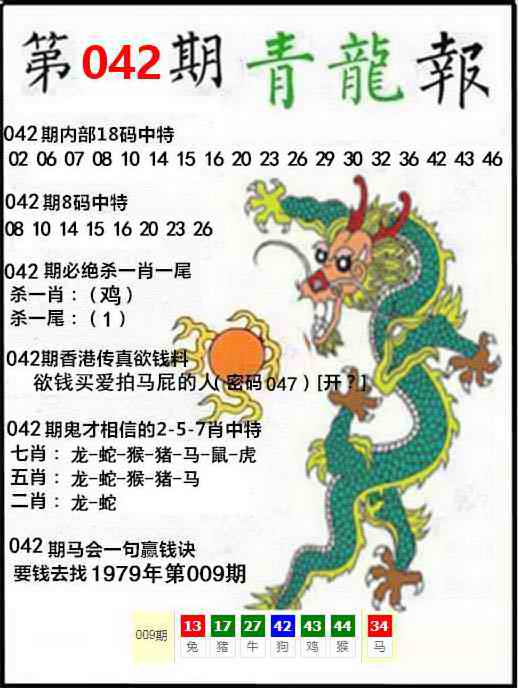 第042期青龍報
042期内部18码中特
02 06 07 08 10 14 15 16 20 23 26 29 30 32 36 42 43 46
042期8码中特
08 10 14 15 16 20 23 26
042 期必绝杀一肖一尾
杀一肖：（鸡）
杀一尾：（1）
042期香港传真欲钱料
欲钱买爱拍马屁的人（密码047）[开？]
042期鬼才相信的2-5-7肖中特
七肖：龙-蛇-猴-猪-马-鼠-虎
五肖：龙-蛇-猴-猪-马
二肖：龙-蛇
042期马会一句赢钱诀
要钱去找1979年第009期
009期 13 17 27 42 43 44 34
兔 猪 牛 狗 鸡 猴 马